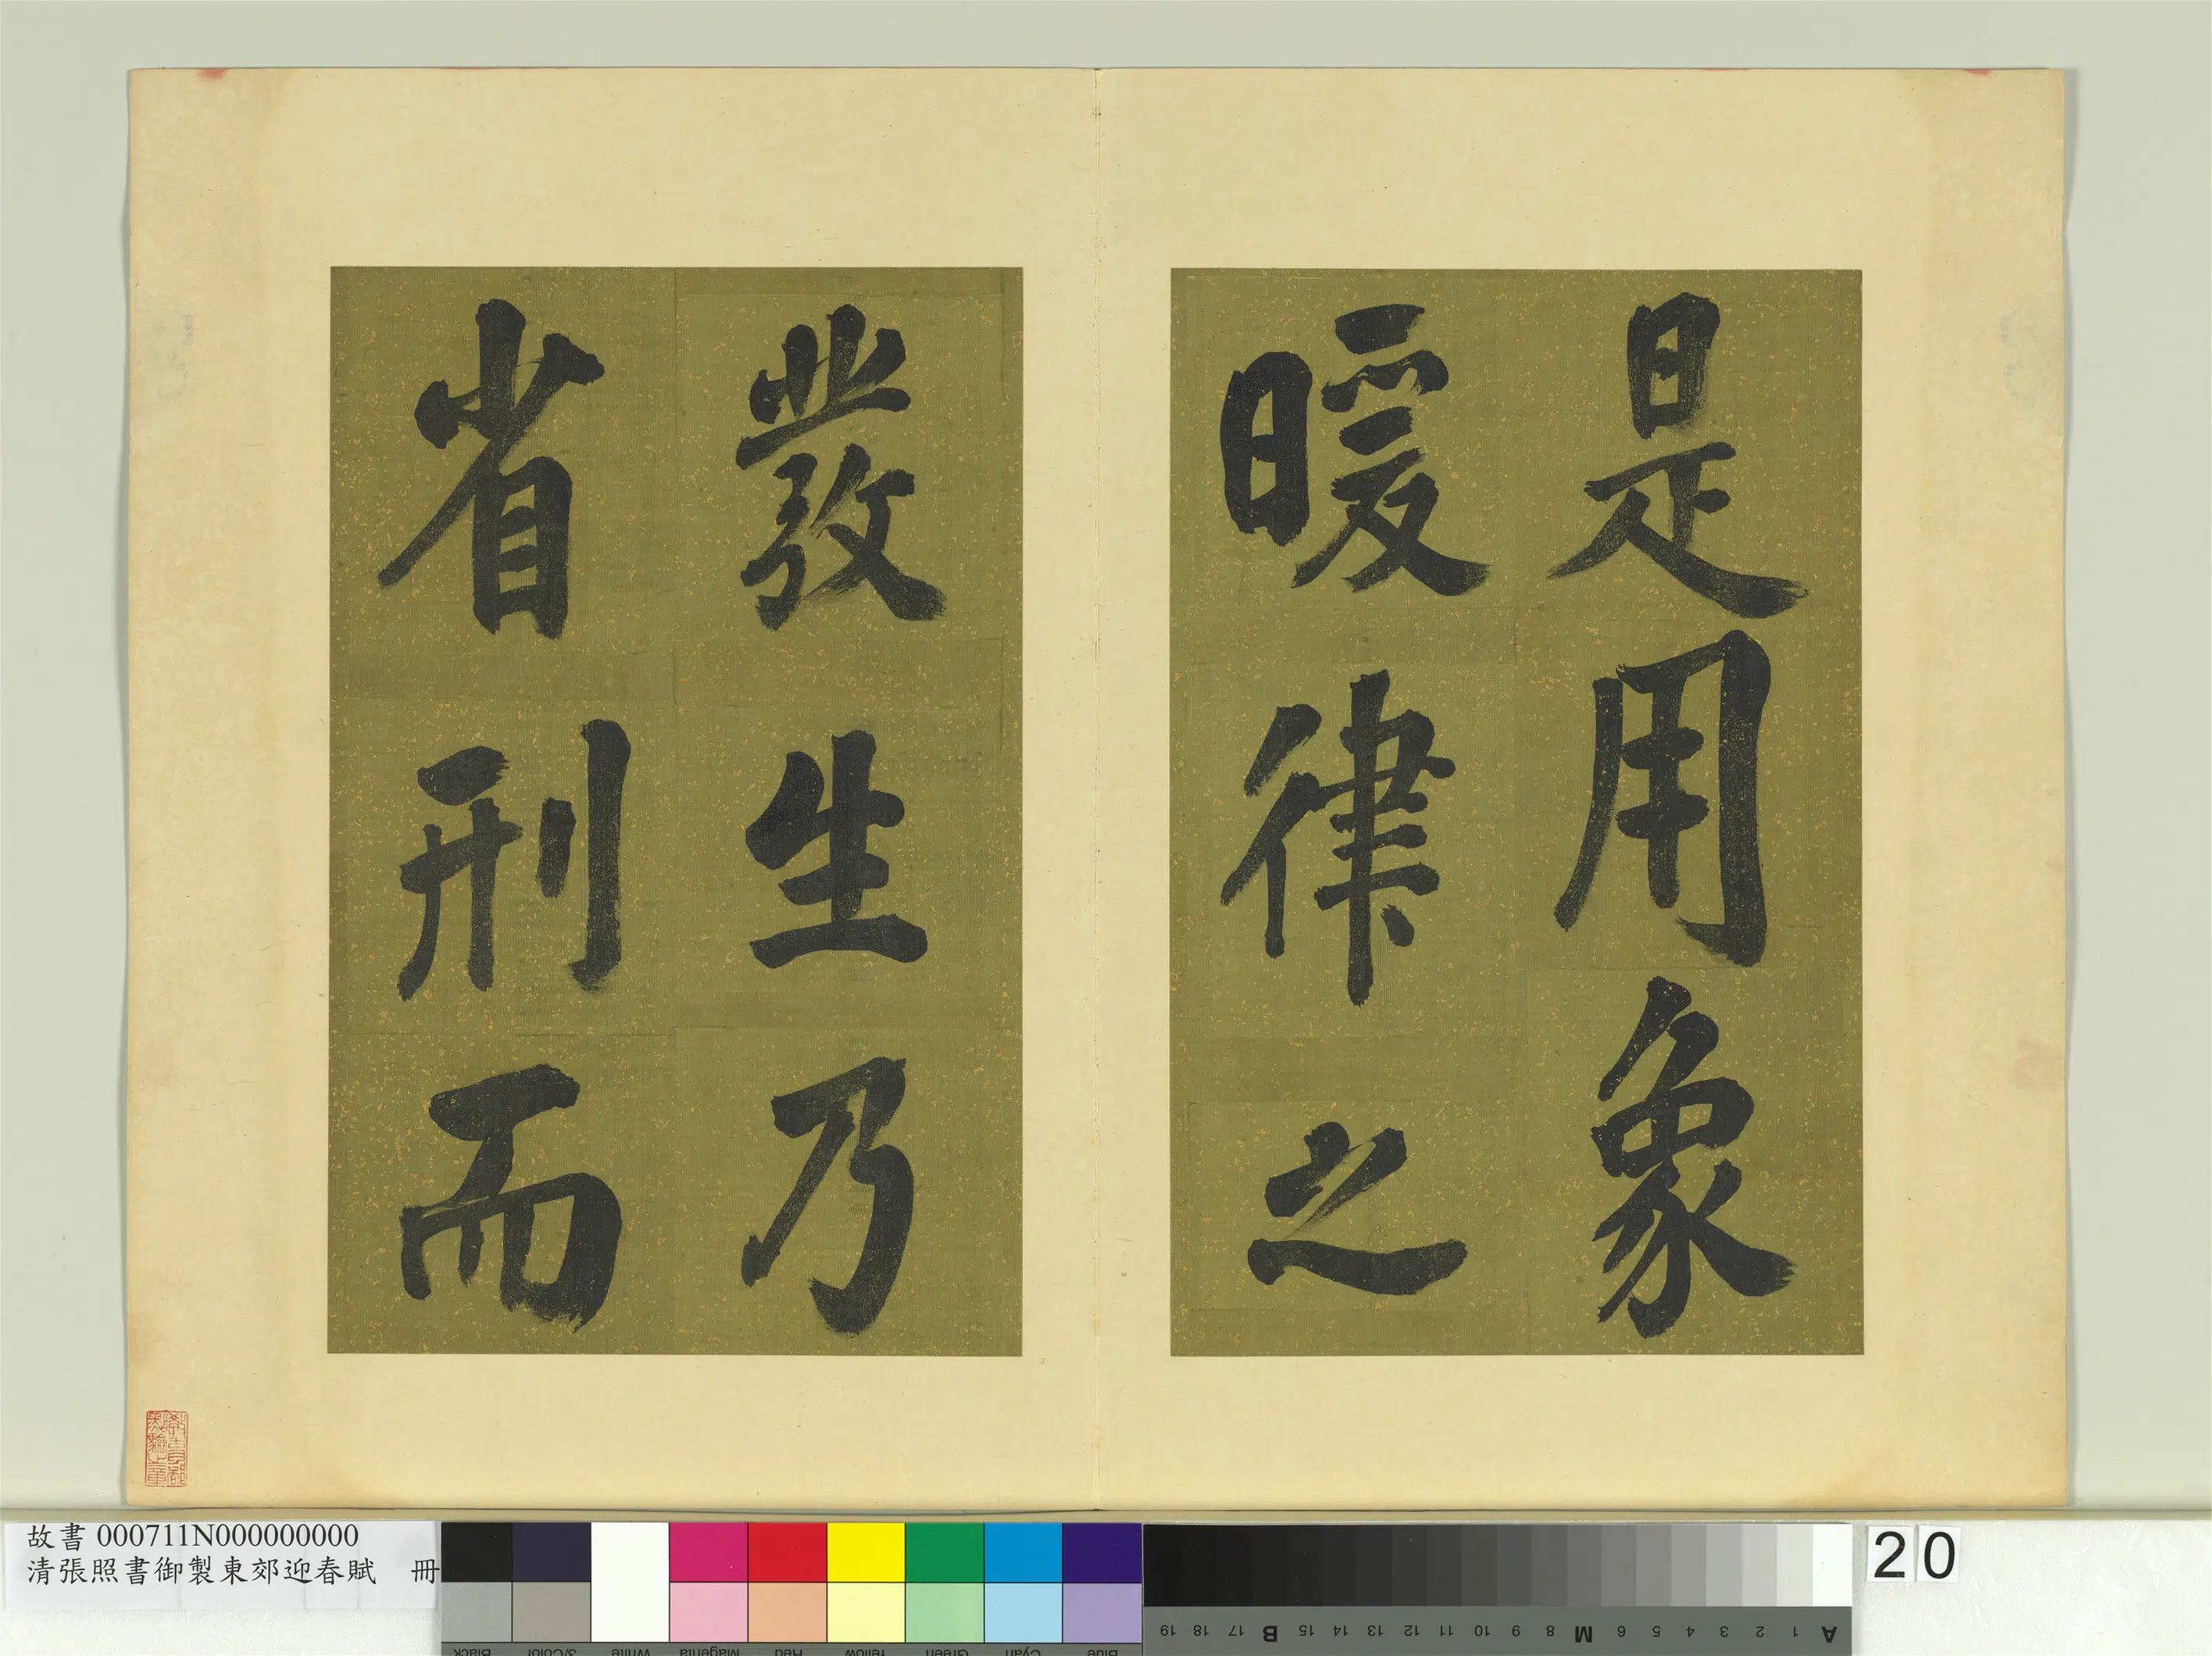 是用象
暖律之
發生乃
省刑而
教育部
點驗之章
故書 000711N000000000
清張照書御製東郊迎春賦 冊
Black
3/Color
White
Magenta
Red
Yellow
Green
Cyan
Blue
A 1 2 3 4 5 6 M 8 9 10 11 12 13 14 15 B 17 18 19
20